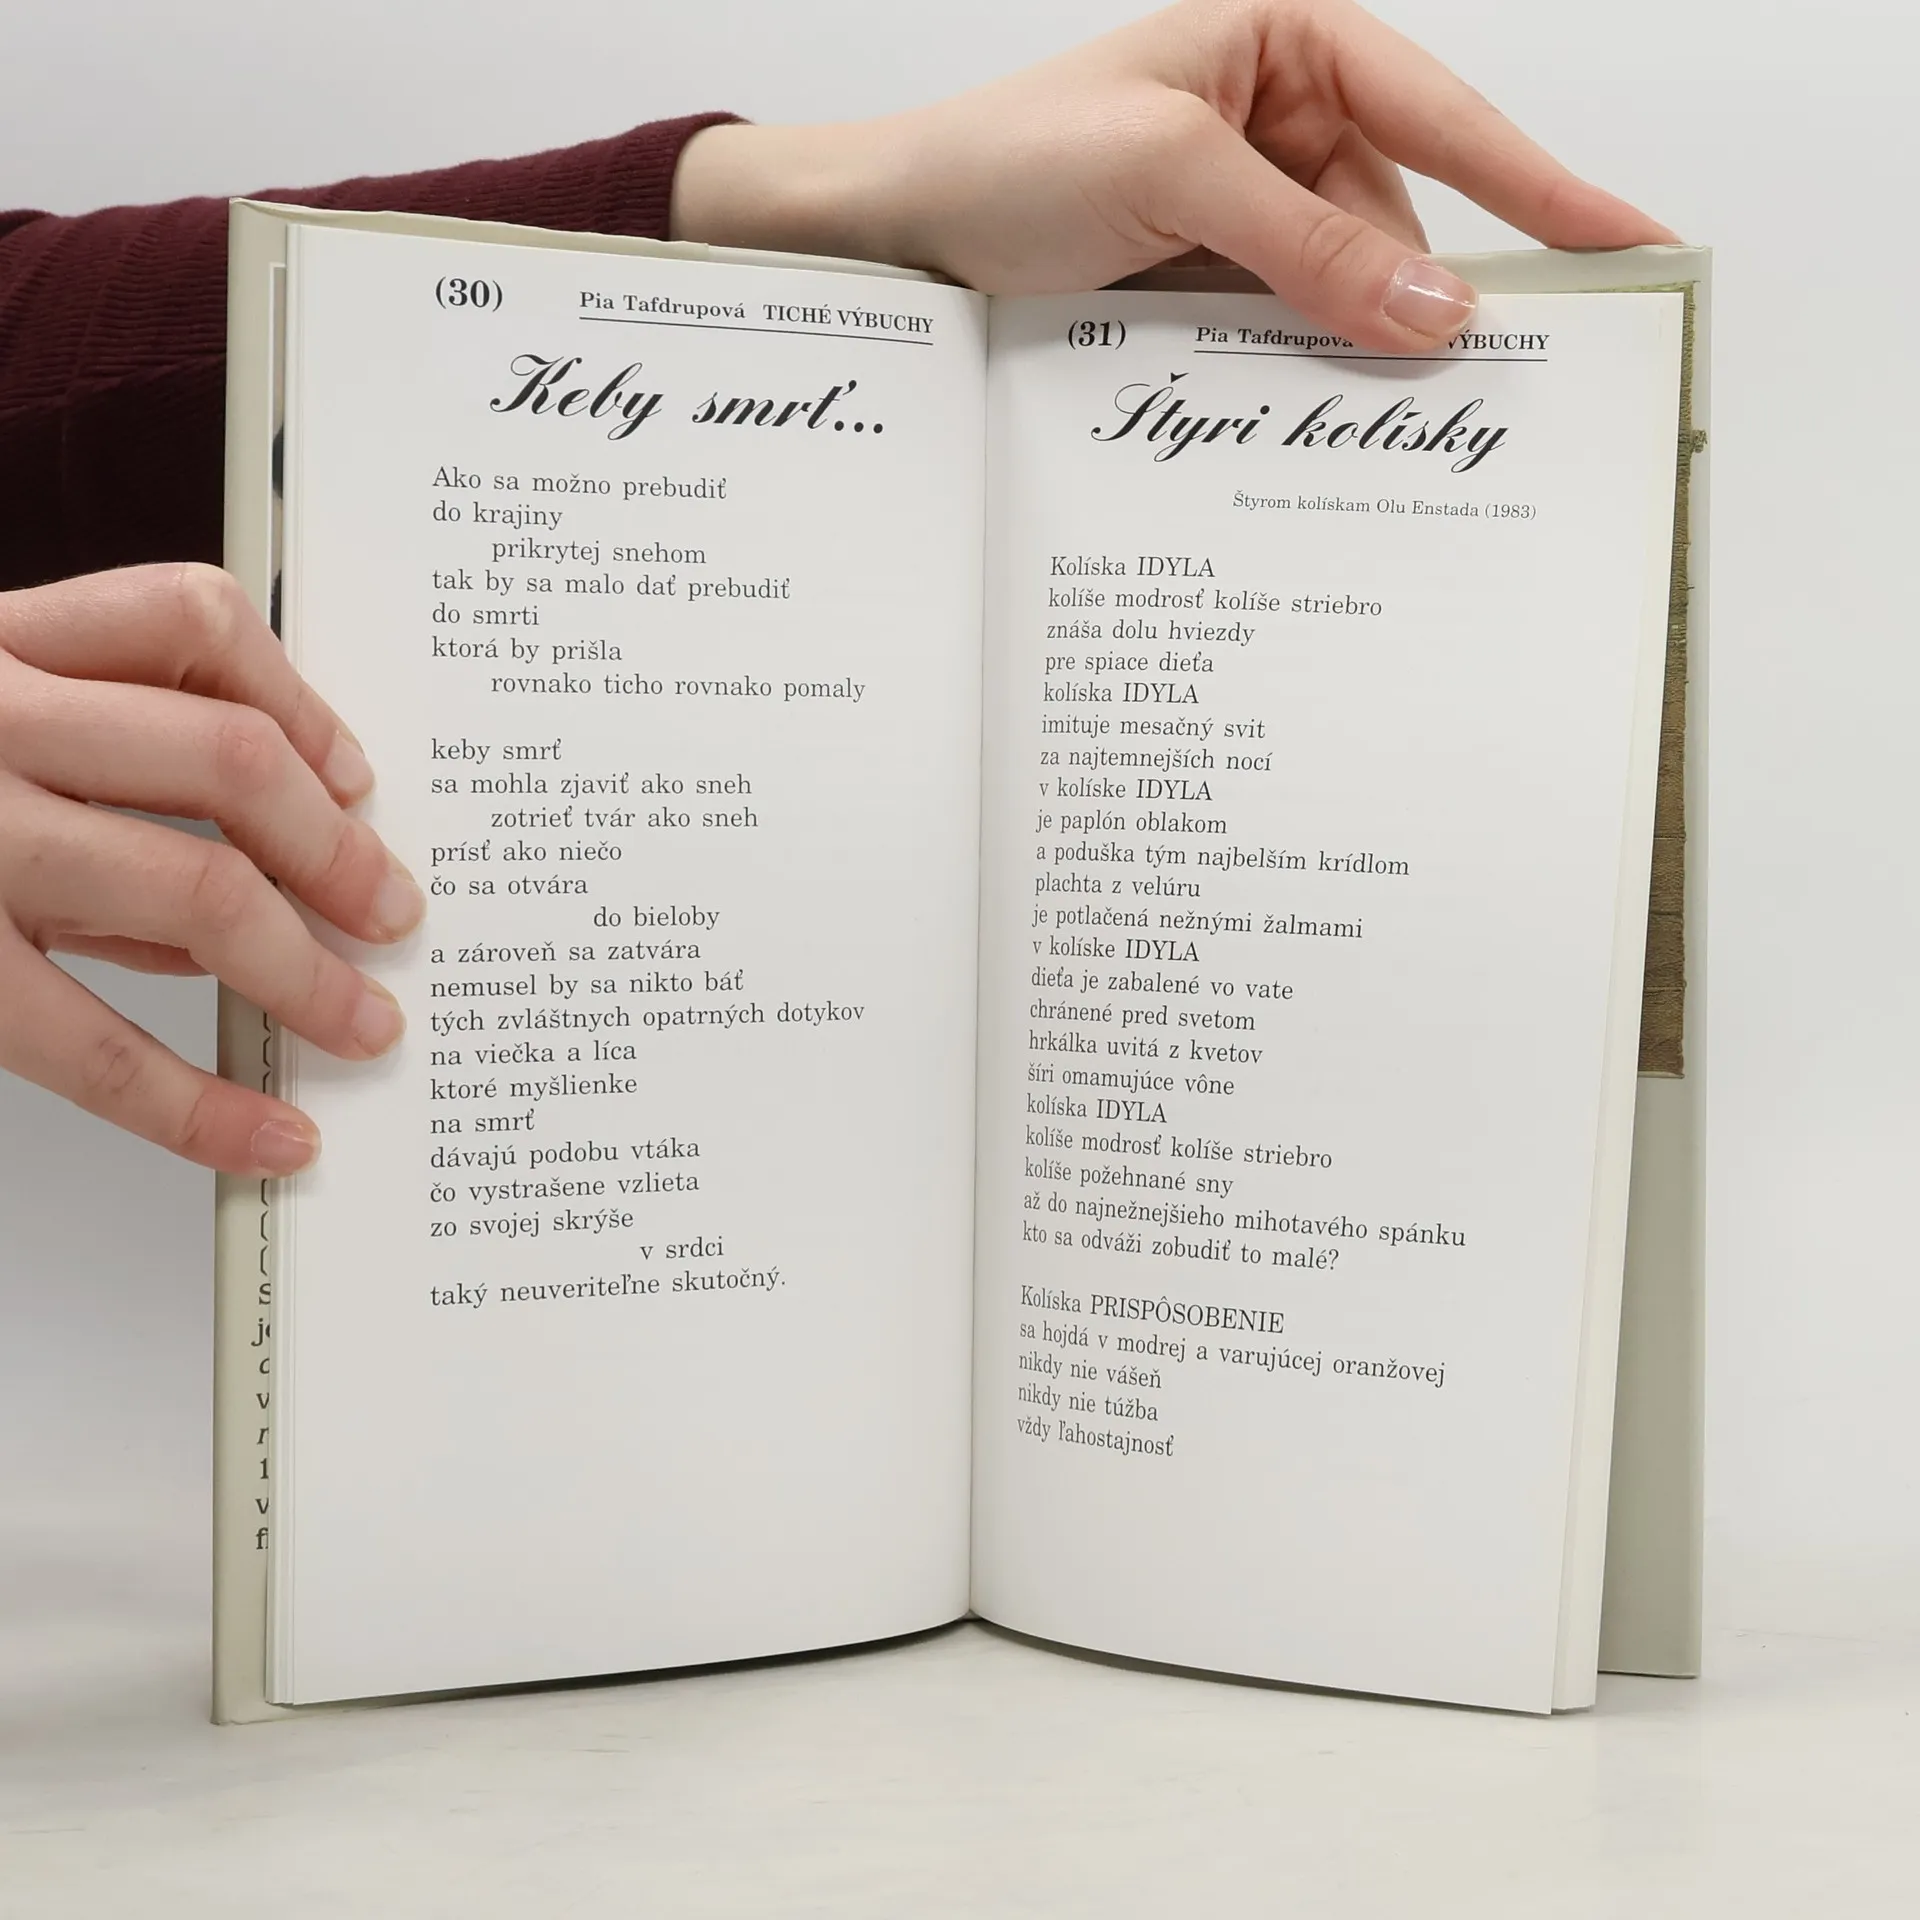 (30) Pia Tafdrupová TICHÉ VÝBUCHY
Keby smrť...
Ako sa možno prebudiť
do krajiny
prikrytej snehom
tak by sa malo dať prebudiť
do smrti
ktorá by prišla
rovnako ticho rovnako pomaly
keby smrť
sa mohla zjaviť ako sneh
zotrieť tvár ako sneh
prísť ako niečo
čo sa otvára
do bieloby
a zároveň sa zatvára
nemusel by sa nikto báť
tých zvláštnych opatrných dotykov
na viečka a líca
ktoré myšlienke
na smrť
dávajú podobu vtáka
čo vystrašene vzlieta
zo svojej skrýše
v srdci
taký neuveriteľne skutočný.
(31) Pia Tafdrupová VÝBUCHY
Štyri kolísky
Štyrom kolískam Olu Enstada (1983)
Kolíska IDYLA
kolíše modrosť kolíše striebro
znáša dolu hviezdy
pre spiace dieťa
kolíska IDYLA
imituje mesačný svit
za najtemnejších nocí
v kolíske IDYLA
je paplón oblakom
a poduška tým najbelším krídlom
plachta z velúru
je potlačená nežnými žalmami
v kolíske IDYLA
dieťa je zabalené vo vate
chránené pred svetom
hrkálka uvitá z kvetov
šíri omamujúce vône
kolíska IDYLA
kolíše modrosť kolíše striebro
kolíše požehnané sny
až do najnežnejšieho mihotavého spánku
kto sa odváži zobudiť to malé?
Kolíska PRISPÔSOBENIE
sa hojdá v modrej a varujúcej oranžovej
nikdy nie vášeň
nikdy nie túžba
vždy ľahostajnosť